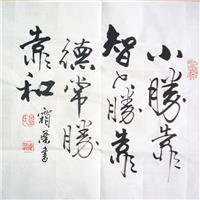 小勝靠
智大勝靠
德常勝
靠和